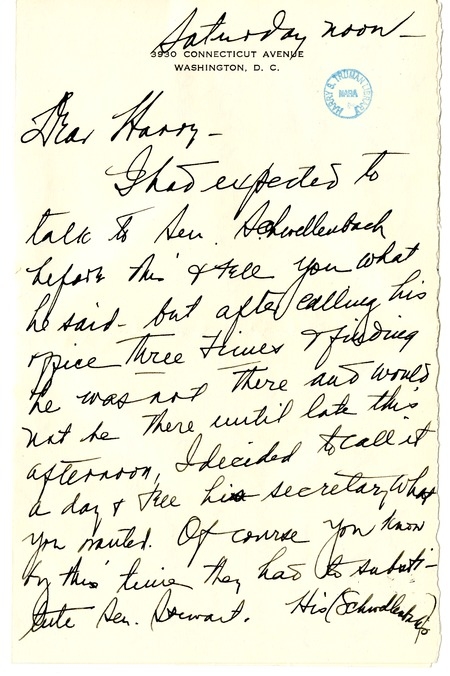 Saturday noon —
3930 CONNECTICUT AVENUE
WASHINGTON, D. C.
HARRY S. TRUMAN LIBRARY
NARA
Dear Harry —
I had expected to
talk to Sen. Schwellenbach
before this & tell you what
he said — but after calling his
office three times & finding
he was not there and would
not be there until late this
afternoon, I decided to call it
a day & tell his secretary what
you wanted. Of course you know
by this time they had to substi-
tute Sen. Stewart. His (Schwellenbach)